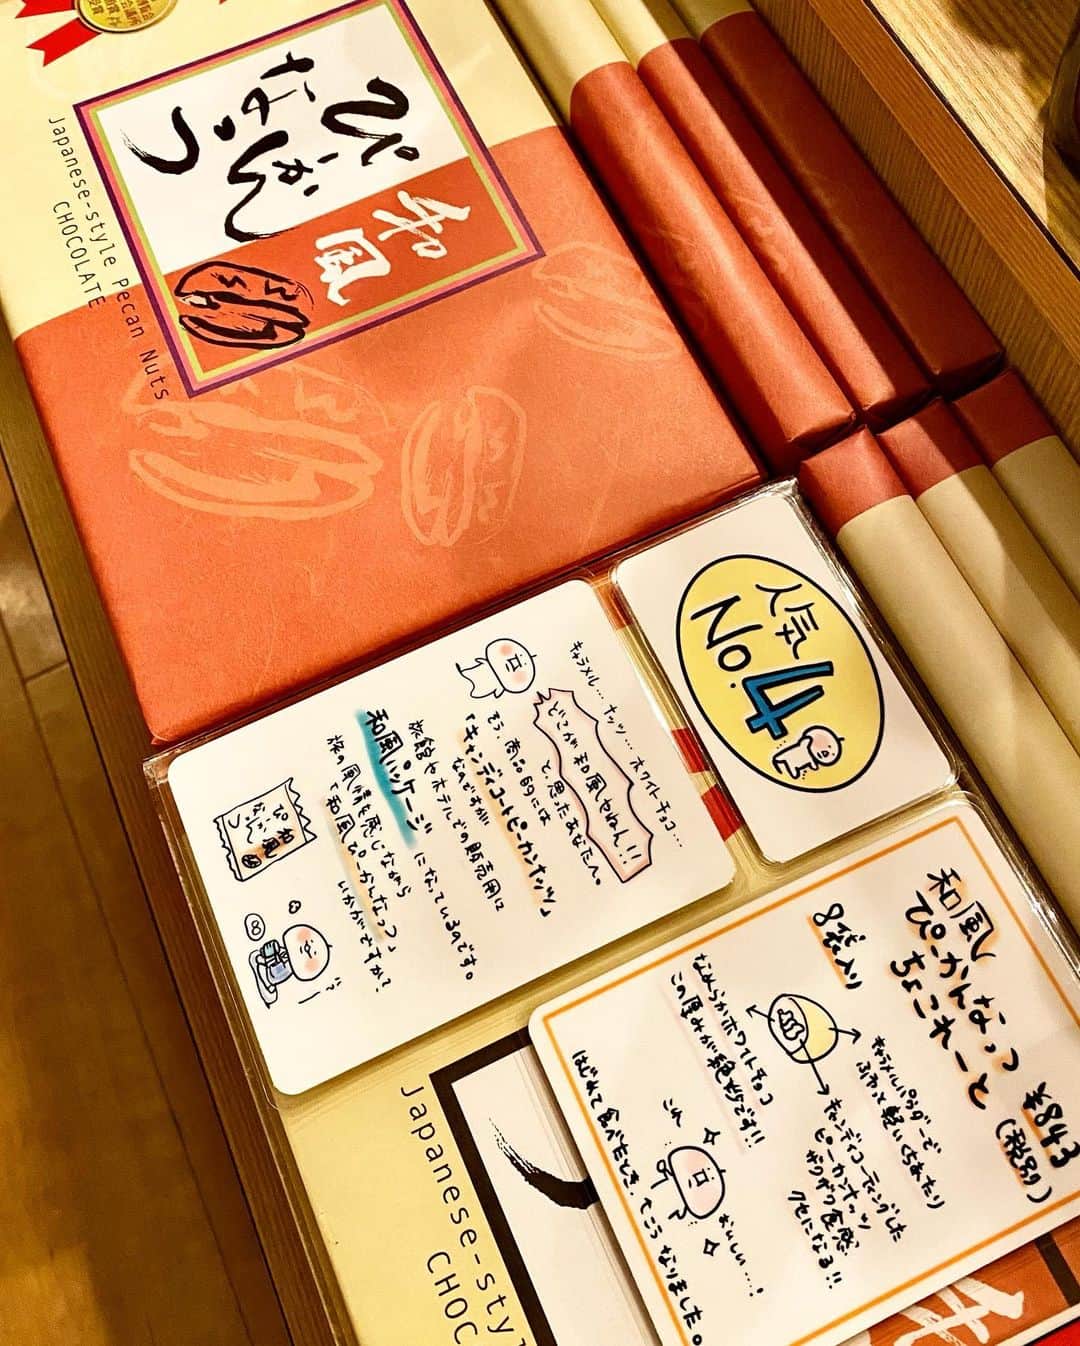 和風
ぴーかんなっつ
Japanese-style Pecan Nuts
CHOCOLATE
人気
No.4
キャラメル… ナッツ… ホワイトチョコ…
どこが和風やねん!!
と、思ったあなたへ。
そう、商品名には
「キャンディコートピーカンナッツ」
なんですが
旅館やホテルでの販売用に
和風パッケージになっているのです。
旅の風情を感じながら
「和風ぴーかんなっつ」
いかがですか?
和風
ぴーかん
なっつ
和風
ぴーかんなっつ
ちょこれーと
¥843
(税別)
8袋入り
キャラメルパウダーで
ふわっと軽いくちあたり
キャンディコーティングした
ピーカンナッツ
ザクザク食感
クセになる!!
なめらかホワイトチョコ
この厚みが絶妙です!!
おいしい…!
はじめて食べたとき、こうなりました。
Japanese-styl
CHOC